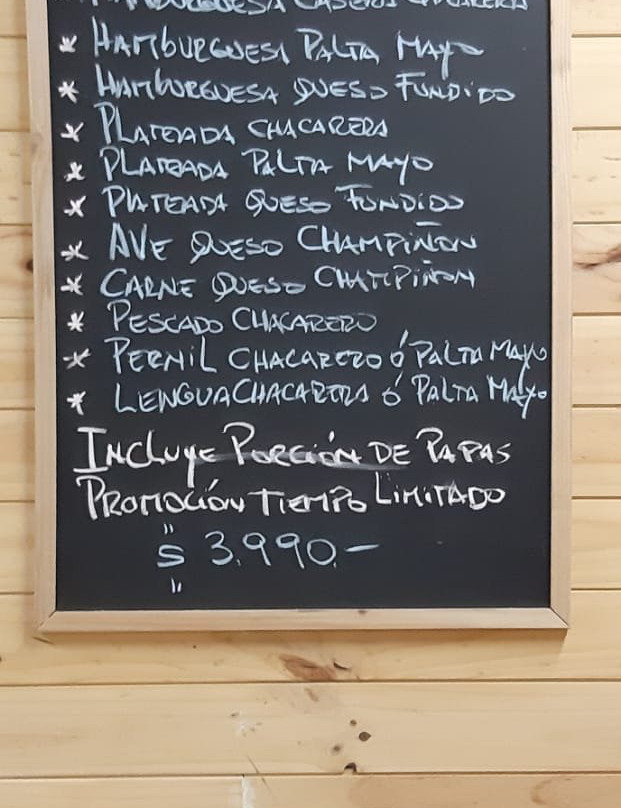 HAMBURGUESA CASERA CHACARERA
* HAMBURGUESA PALTA MAYO
* HAMBURGUESA QUESO FUNDIDO
* PLATEADA CHACARERA
* PLATEADA PALTA MAYO
* PLATEADA QUESO FUNDIDO
* AVE QUESO CHAMPIÑON
* CARNE QUESO CHAMPIÑON
* PESCADO CHACARERO
* PERNIL CHACARERO Ó PALTA MAYO
* LENGUA CHACARERA Ó PALTA MAYO
INCLUYE PORCIÓN DE PAPAS
PROMOCIÓN TIEMPO LIMITADO
$ 3.990.-